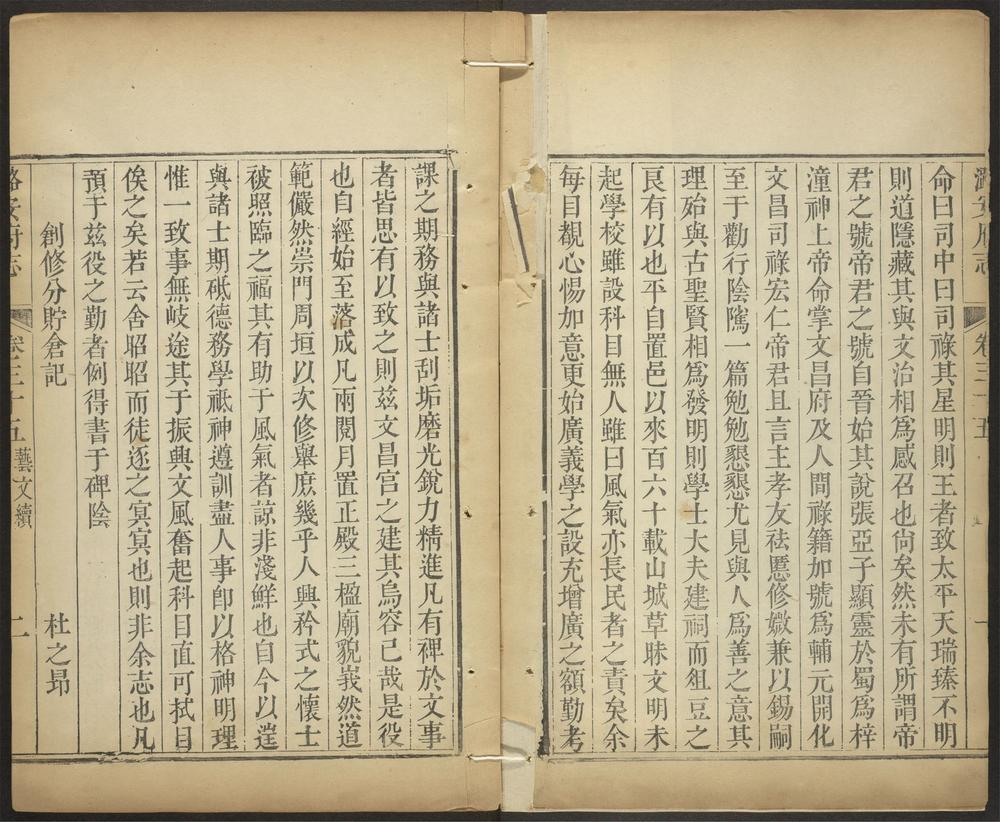 潞安府志
卷三十五
一
命曰司中曰司祿其星明則王者致太平天瑞臻不明
則道隱藏其與文治相為感召也尚矣然未有所謂帝
君之號帝君之號自晉始其說張亞子顯靈於蜀為梓
潼神上帝命掌文昌府及人間祿籍加號為輔元開化
文昌司祿宏仁帝君且言主孝友祛慝修媺兼以錫嗣
至于勸行陰騭一篇勉勉懇懇尤見與人為善之意其
理殆與古聖賢相為發明則學士大夫建祠而俎豆之
良有以也平自置邑以來百六十載山城草昧文明未
起學校雖設科目無人雖曰風氣亦長民者之責矣余
每目覩心惕加意更始廣義學之設充增廣之額勤考
課之期務與諸士刮垢磨光銳力精進凡有裨於文事
者皆思有以致之則茲文昌宮之建其烏容已哉是役
也自經始至落成凡兩閱月置正殿三楹廟貌峩然道
範儼然崇門周垣以次修舉庶幾乎人興矜式之懷士
被照臨之福其有助于風氣者諒非淺鮮也自今以逞
與諸士期砥德務學祗神遵訓盡人事卽以格神明理
惟一致事無岐途其于振興文風奮起科目直可拭目
俟之矣若云舍昭昭而徒逐之冥冥也則非余志也凡
預于茲役之勤者例得書于碑陰
創修分貯倉記
杜之昂
潞安府志
卷三十五
藝文續
二